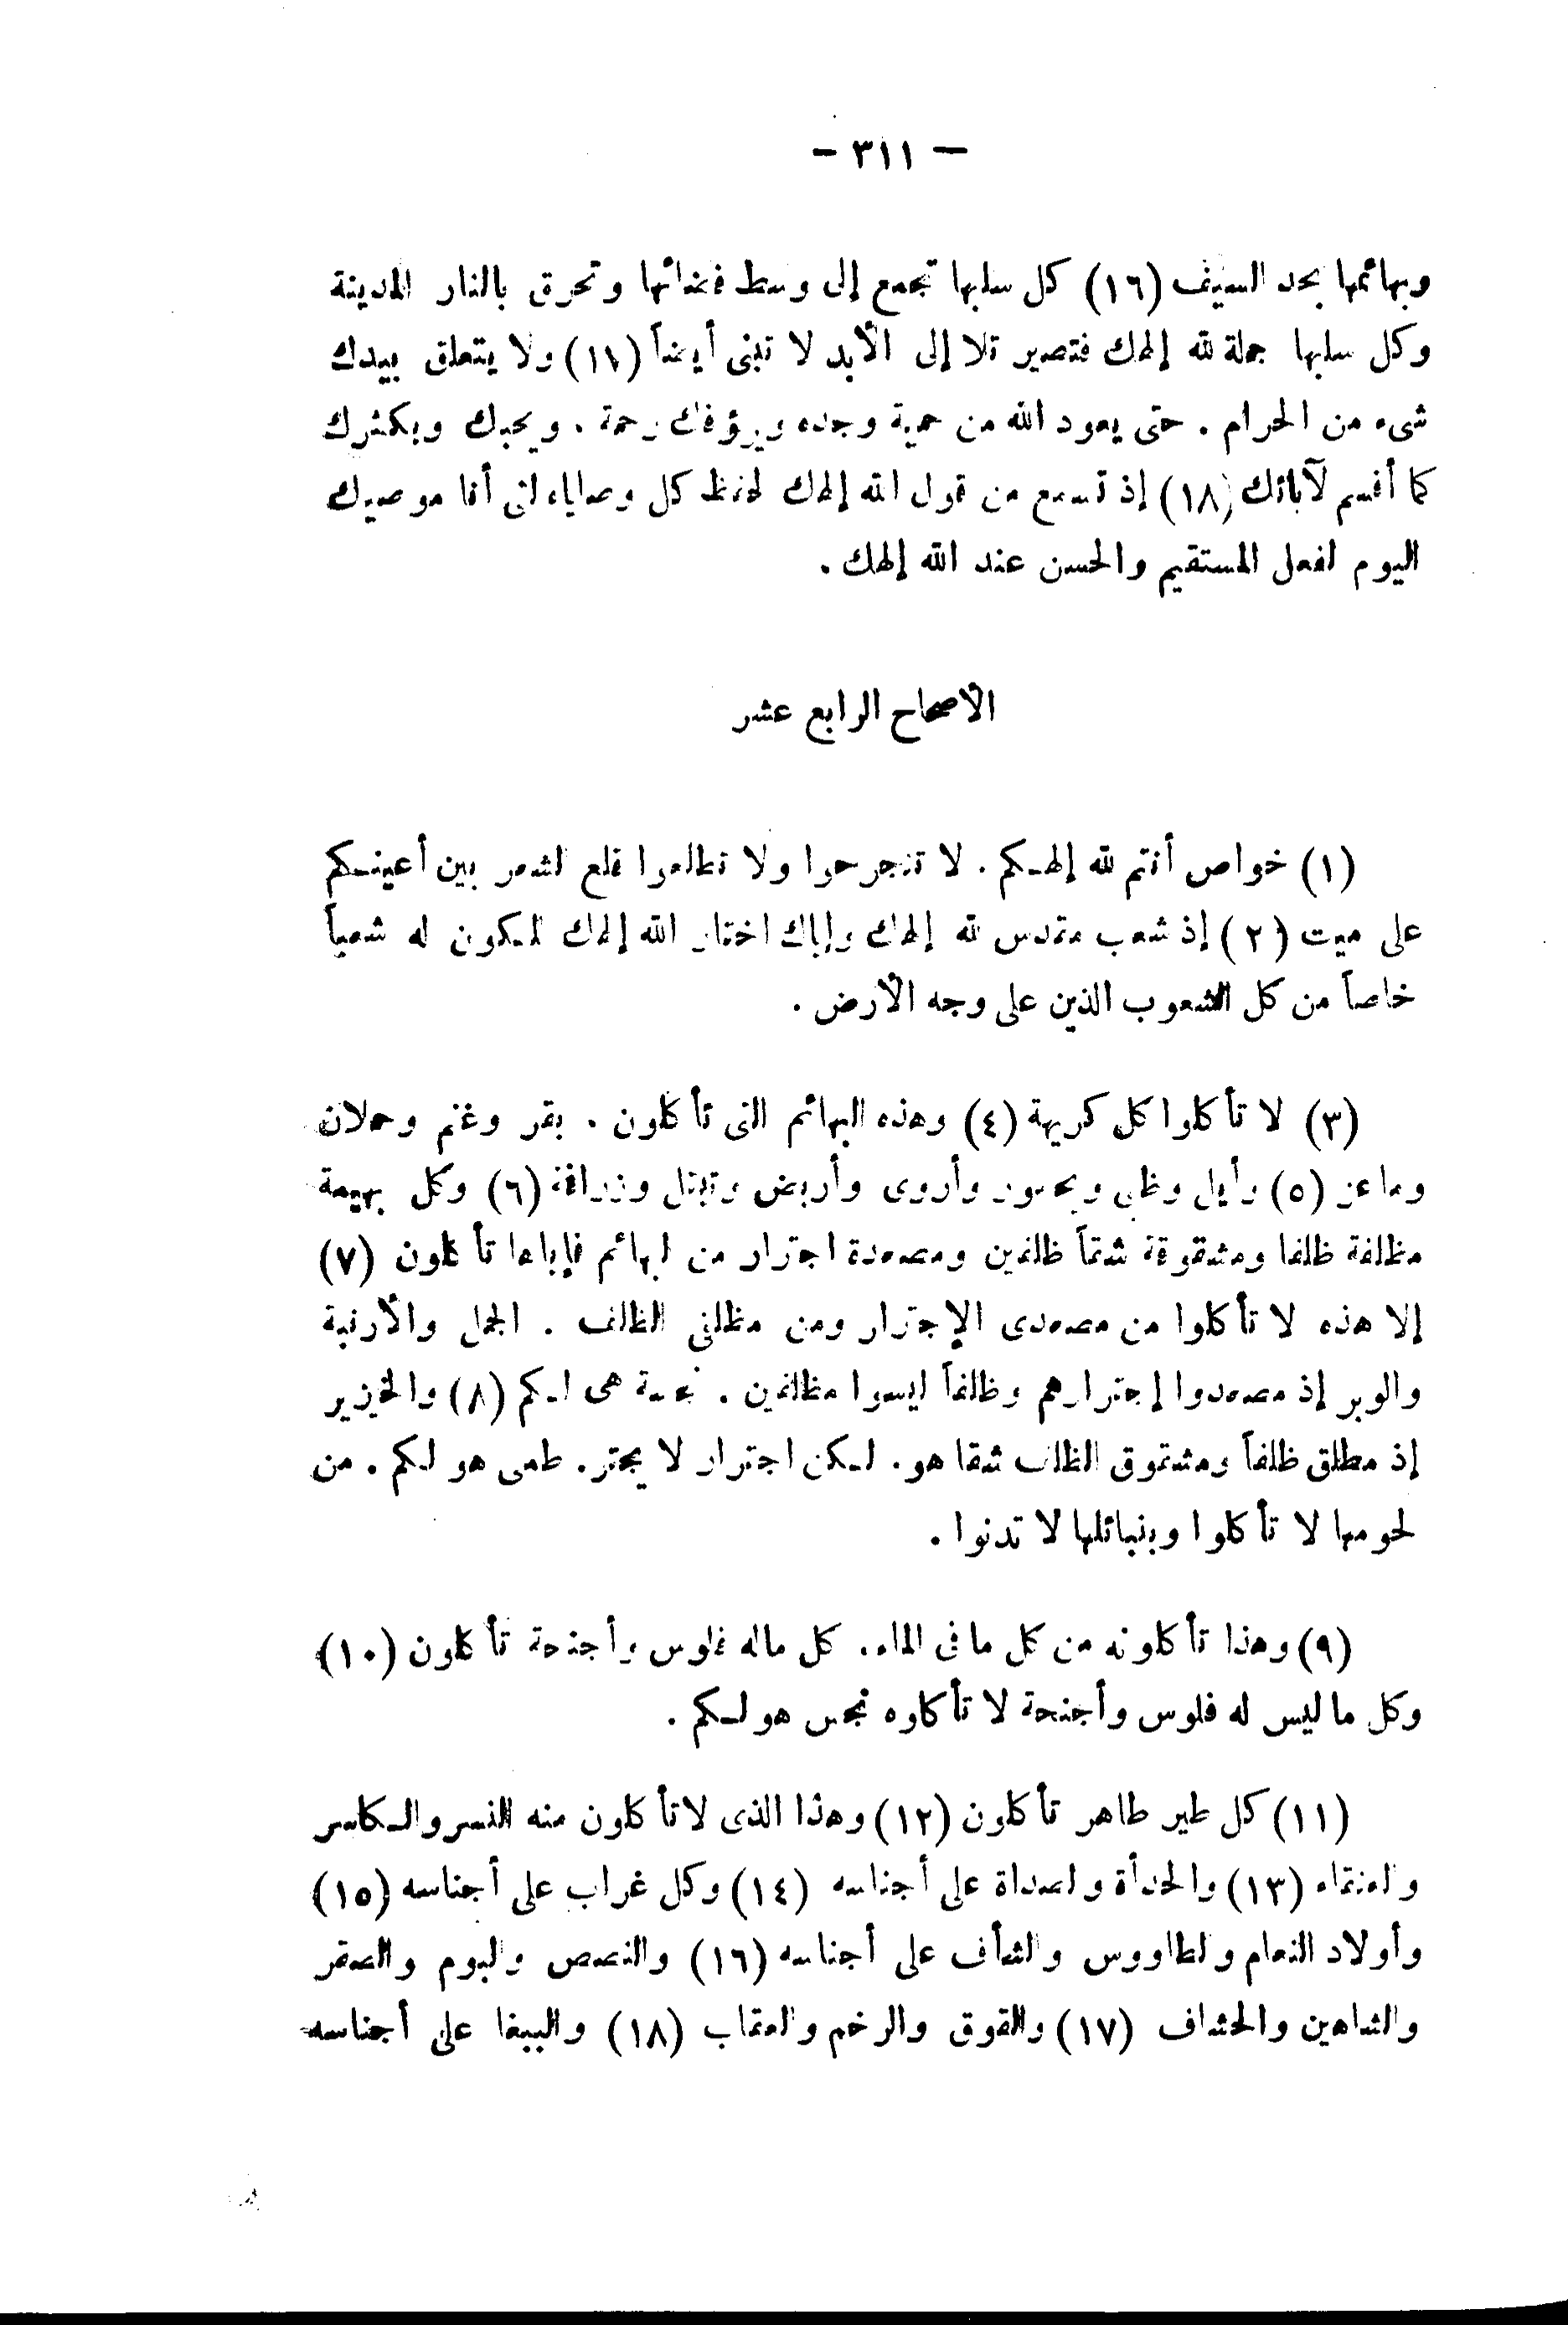 — ٣١١ —
وبهائمها بحد السيف (١٦) كل سلبها تجمع إلى وسط فضائها وتحرق بالنار المدينة
وكل سلبها جملة لله إلهك فتصير تلا إلى الأبد لا تبنى أيضاً (١٧) ولا يتعلق بيدك
شىء من الحرام . حتى يعود الله من حمية وجده ويرؤفك رحمة . ويحبك ويكثرك
كما أقسم لآبائك (١٨) إذ تسمع من قول الله إلهك لحفظ كل وصاياه لتى أنا موصيك
اليوم لفعل المستقيم والحسن عند الله إلهك .
الاصحاح الرابع عشر
(١) خواص أنتم لله إلهـكم . لا تنجرحوا ولا تطلعوا قلع لشعر بين أعينـكم
على ميت (٢) إذ شعب مقدس لله إلهك وإياك اختار الله إلهك لتـكون له شعباً
خاصاً من كل الشعوب الذين على وجه الأرض .
(٣) لا تأكلوا كل كريهة (٤) وهذه البهائم التى تأكلون . بقر وغنم وحملان
وماعز (٥) وأيل وظبى ويحمور وأروى وأربض وتيتل وزرافة (٦) وكل بهيمة
مظلفة ظلفا ومشقوقة شقاً ظلفين ومصعدة اجترار من لبهائم فإياها تأكلون (٧)
إلا هذه لا تأكلوا من مصعدى الإجترار ومن مظلفى الظلف . الجمل والأرنبة
والوبر إذ مصعدوا إجترارهم وظلفاً ليسوا مظلفين . نجسة هى لـكم (٨) والخنزير
إذ مطلق ظلفاً ومشقوق الظلف شقا هو . لـكن اجترار لا يجتر . طمى هو لـكم . من
لحومها لا تأكلوا وبنبائلها لا تدنوا .
(٩) وهذا تأكلونه من كل ما فى الماء . كل ماله فلوس وأجنحة تأكلون (١٠)
وكل ما ليس له فلوس وأجنحة لا تأكلوه نجس هو لـكم .
(١١) كل طير طاهر تأكلون (١٢) وهذا الذى لا تأكلون منه النسر والـكاسر
والعنقاء (١٣) والحدأة والصداة على أجناسه (١٤) وكل غراب على أجناسه (١٥)
وأولاد النعام والطاووس والشأف على أجناسه (١٦) والنصص والبوم والصقر
والشاهين والخشاف (١٧) والقوق والرخم والعقاب (١٨) والببغا على أجناسه